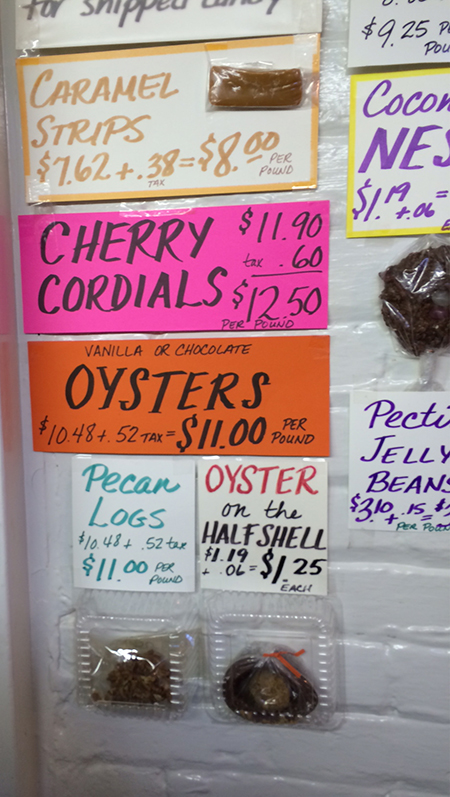 for shipped candy
CARAMEL
STRIPS
$7.62 + .38 = $8.00 PER
TAX POUND
CHERRY $11.90
tax .60
CORDIALS $12.50
PER POUND
VANILLA OR CHOCOLATE
OYSTERS
$10.48 + .52 TAX = $11.00 PER
POUND
Pecan
LOGS
$10.48 + .52 tax
$11.00 PER
POUND
OYSTER
on the
HALFSHELL
$1.19
+ .06 = $1.25
EACH
$9.25 P
POU
Cocon
NES
$1.19
+.06 =
E
Pecti
JELLY
BEANS
$3.10 + .15 = $
PER POUN